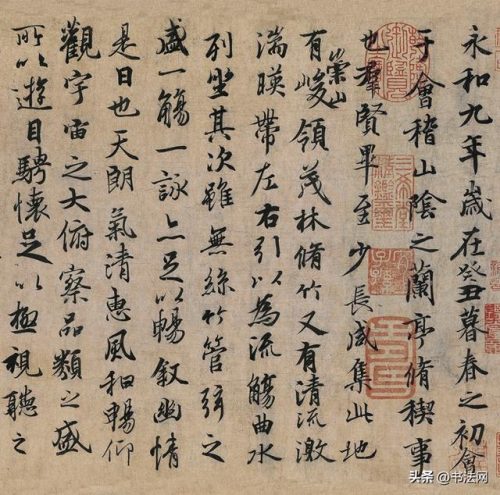 永和九年歲在癸丑暮春之初會
于會稽山陰之蘭亭脩稧事
也羣賢畢至少長咸集此地
有崇山峻領茂林脩竹又有清流激
湍暎帶左右引以為流觴曲水
列坐其次雖無絲竹管弦之
盛一觴一詠亦足以暢敘幽情
是日也天朗氣清惠風和暢仰
觀宇宙之大俯察品類之盛
所以遊目騁懷足以極視聽之
头条 @书法网